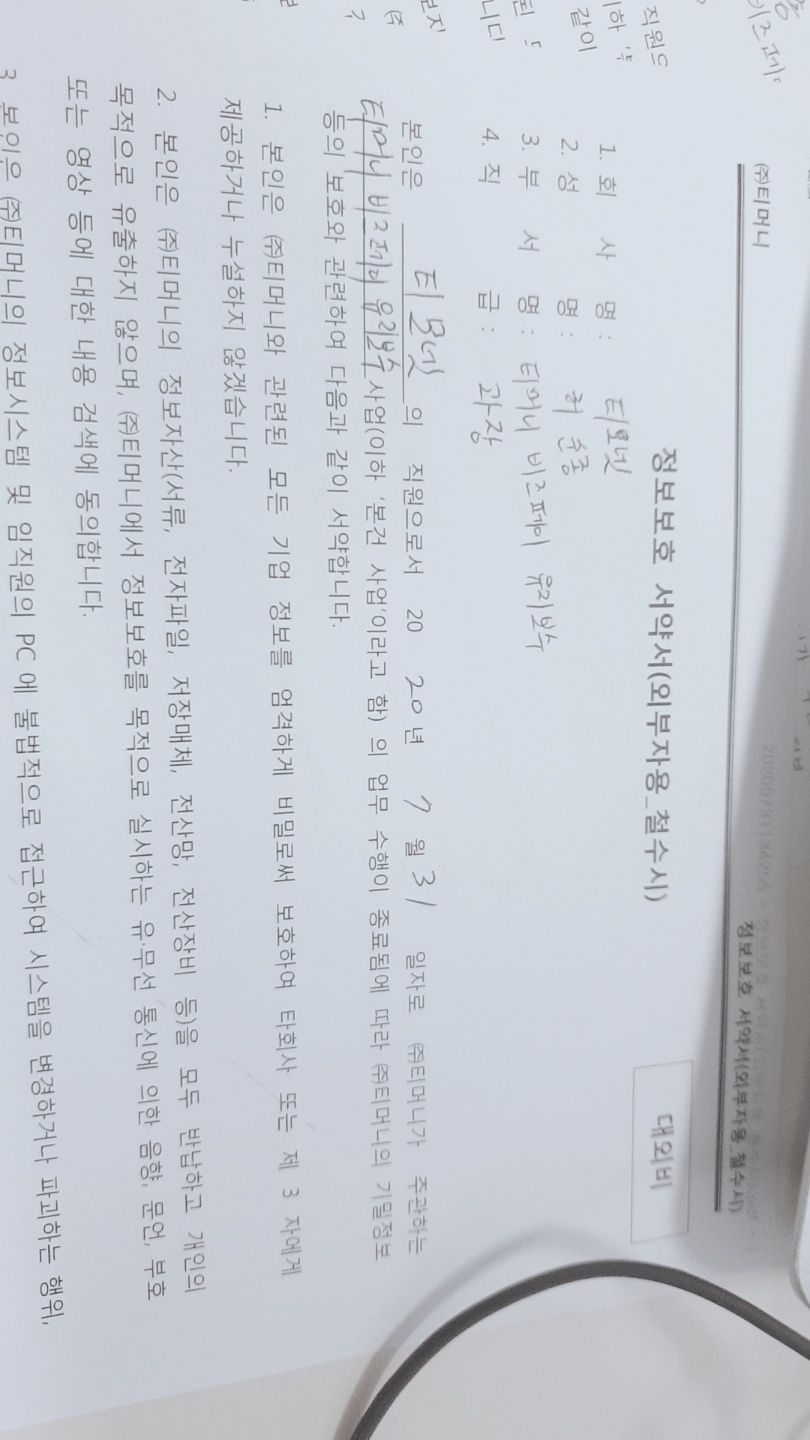 ㈜티머니
정보보호 서약서(외부자용_철수시)
대외비
정보보호 서약서(외부자용_철수시)
1. 회 사 명 : 티모넷
2. 성 명 : 허
3. 부 서 명 : 티머니 비즈페이 유지보수
4. 직 급 : 과장
본인은 티모넷 의 직원으로서 20 20년 7 월 31 일자로 ㈜티머니가 주관하는
티머니 비즈페이 유지보수 사업(이하 '본건 사업'이라고 함) 의 업무 수행이 종료됨에 따라 ㈜티머니의 기밀정보
등의 보호와 관련하여 다음과 같이 서약합니다.
1. 본인은 ㈜티머니와 관련된 모든 기업 정보를 엄격하게 비밀로써 보호하여 타회사 또는 제 3 자에게
제공하거나 누설하지 않겠습니다.
2. 본인은 ㈜티머니의 정보자산(서류, 전자파일, 저장매체, 전산망, 전산장비 등)을 모두 반납하고 개인의
목적으로 유출하지 않으며, ㈜티머니에서 정보보호를 목적으로 실시하는 유·무선 통신에 의한 음향, 문언, 부호
또는 영상 등에 대한 내용 검색에 동의합니다.
3 본인은 ㈜티머니의 정보시스템 및 임직원의 PC 에 불법적으로 접근하여 시스템을 변경하거나 파괴하는 행위,
직원으
같이
니다